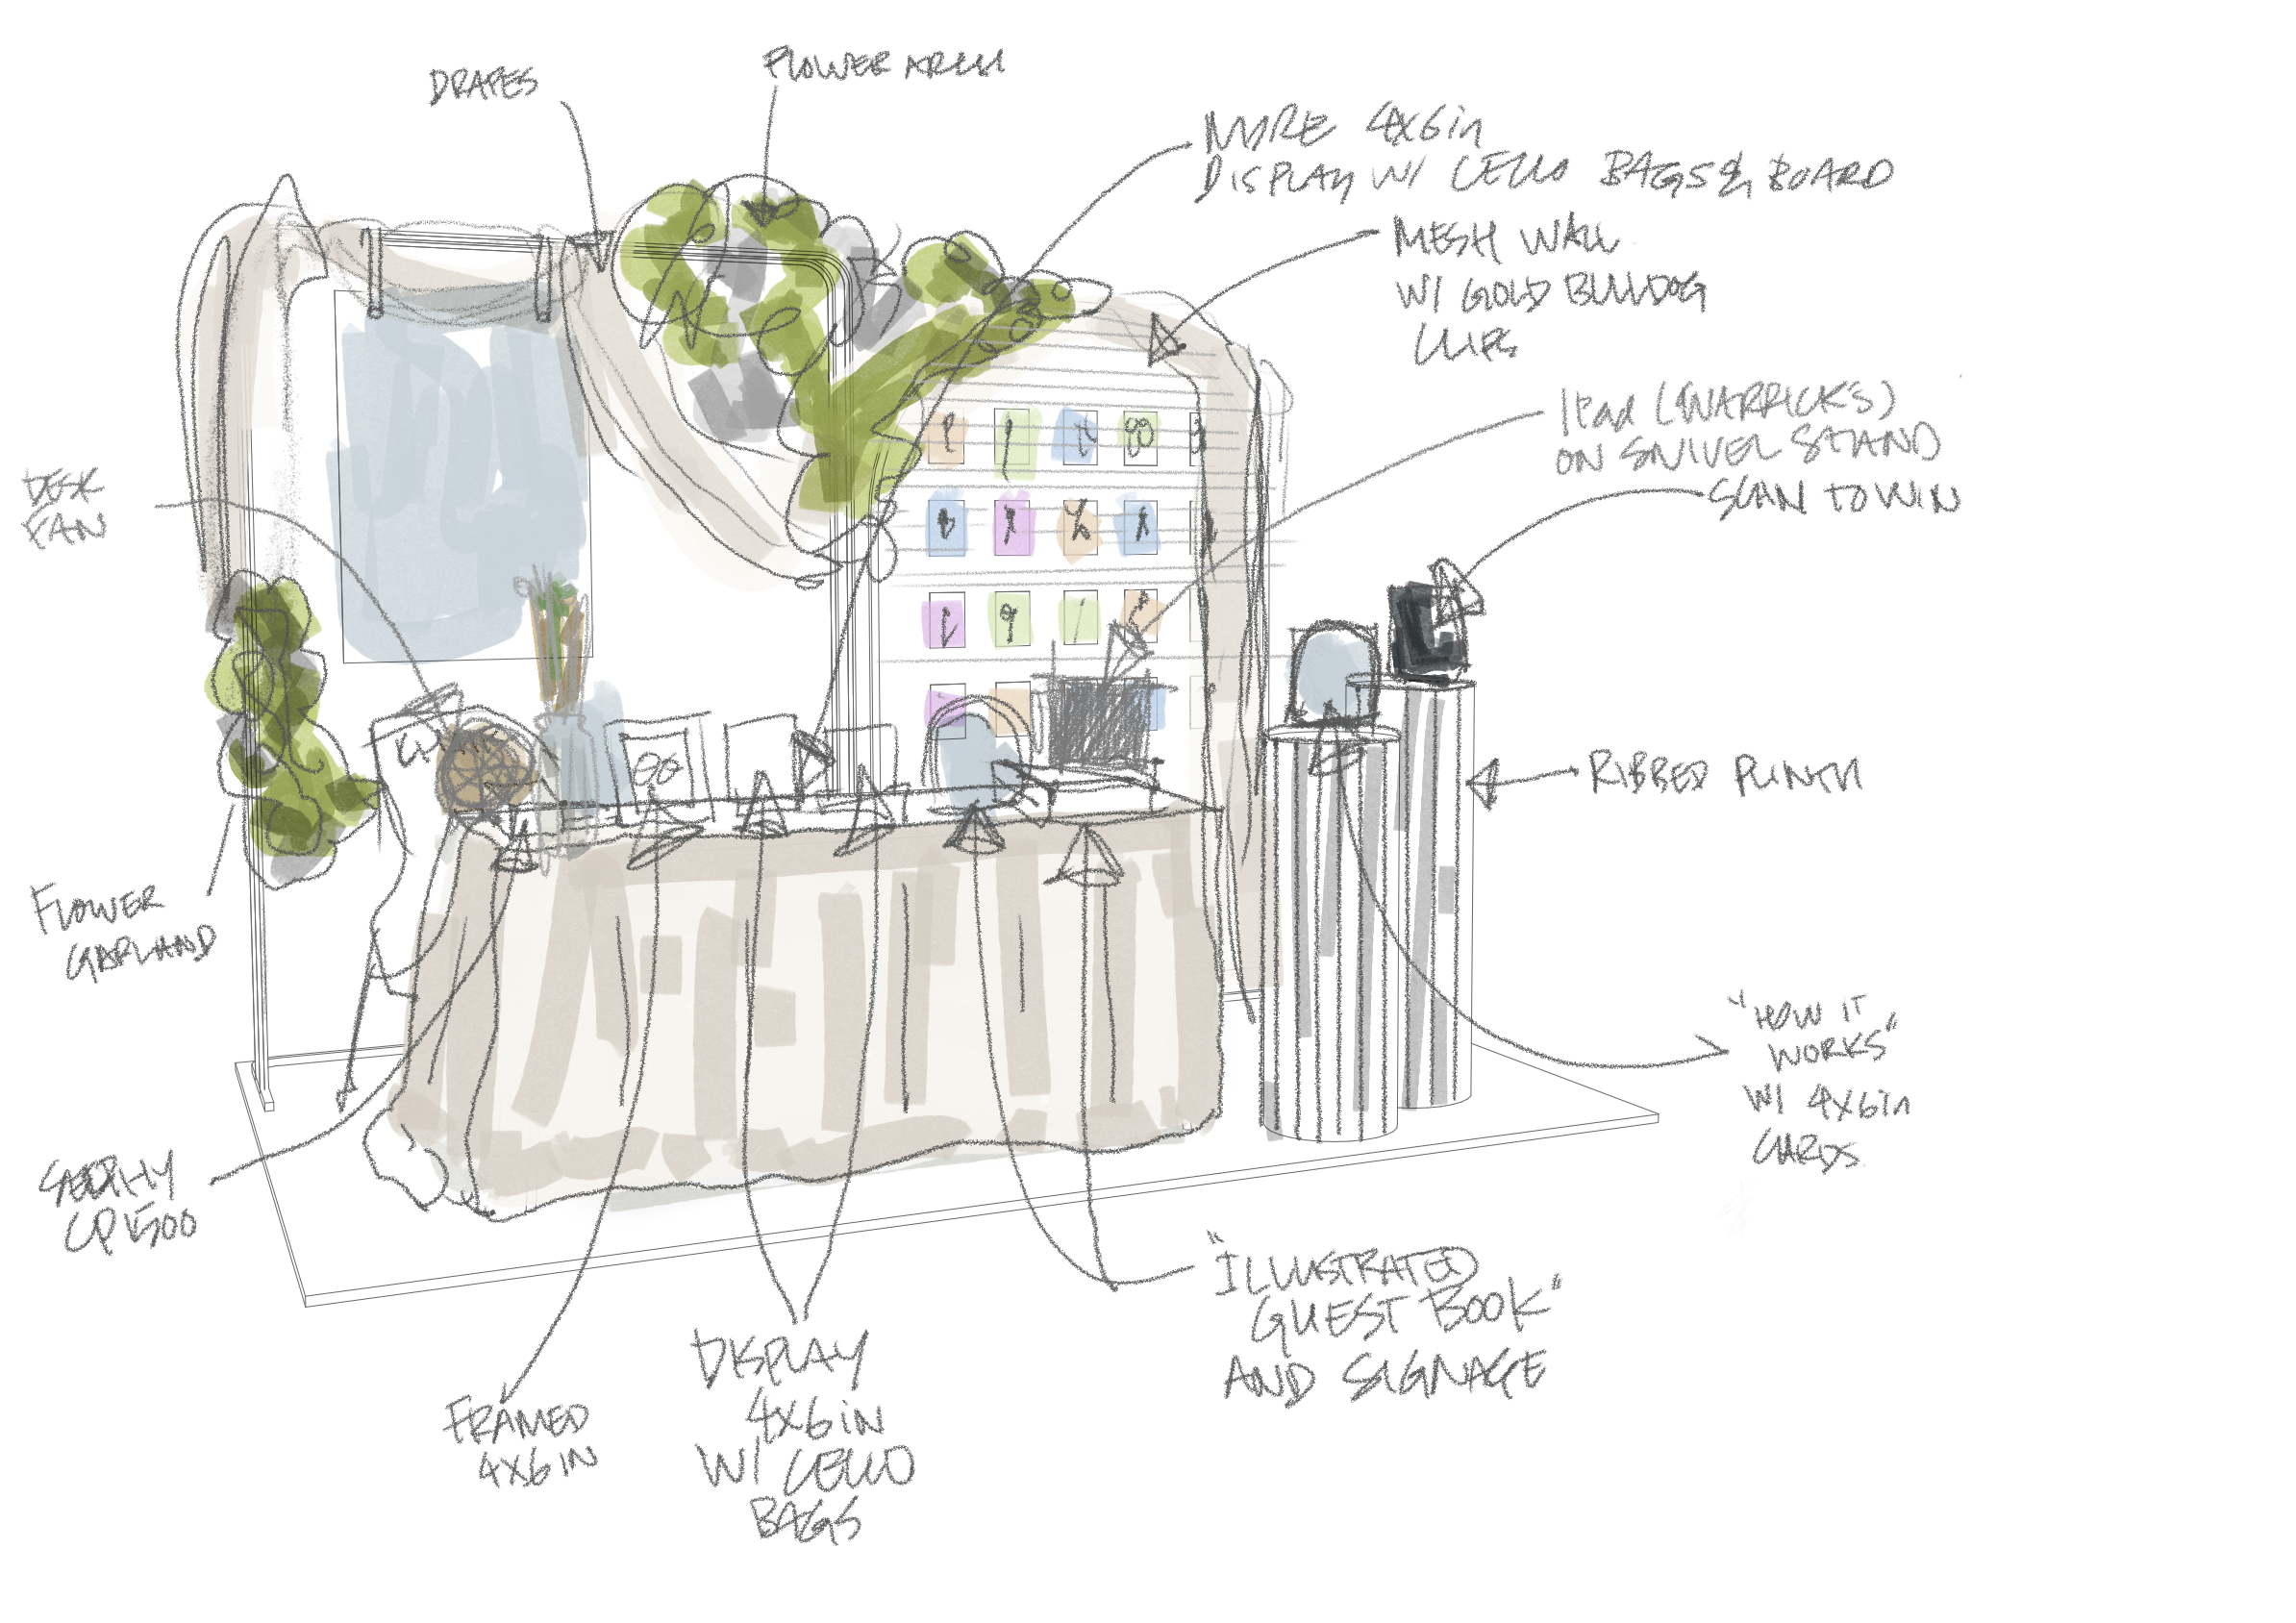 DRAPES
FLOWER ARCH
MORE 4X6in
DISPLAY W/ CELLO BAGS & BOARD
MESH WALL
W/ GOLD BULLDOG
CLIPS
IPad (WARRICK'S)
ON SWIVEL STAND
SCAN TO WIN
DESK
FAN
RIBBED PLINTH
FLOWER
GARLAND
"HOW IT
WORKS"
W/ 4X6in
CARDS
CP1500
"ILLUSTRATED
GUEST BOOK"
AND SIGNAGE
DISPLAY
4X6in
W/ CELLO
BAGS
FRAMED
4X6IN